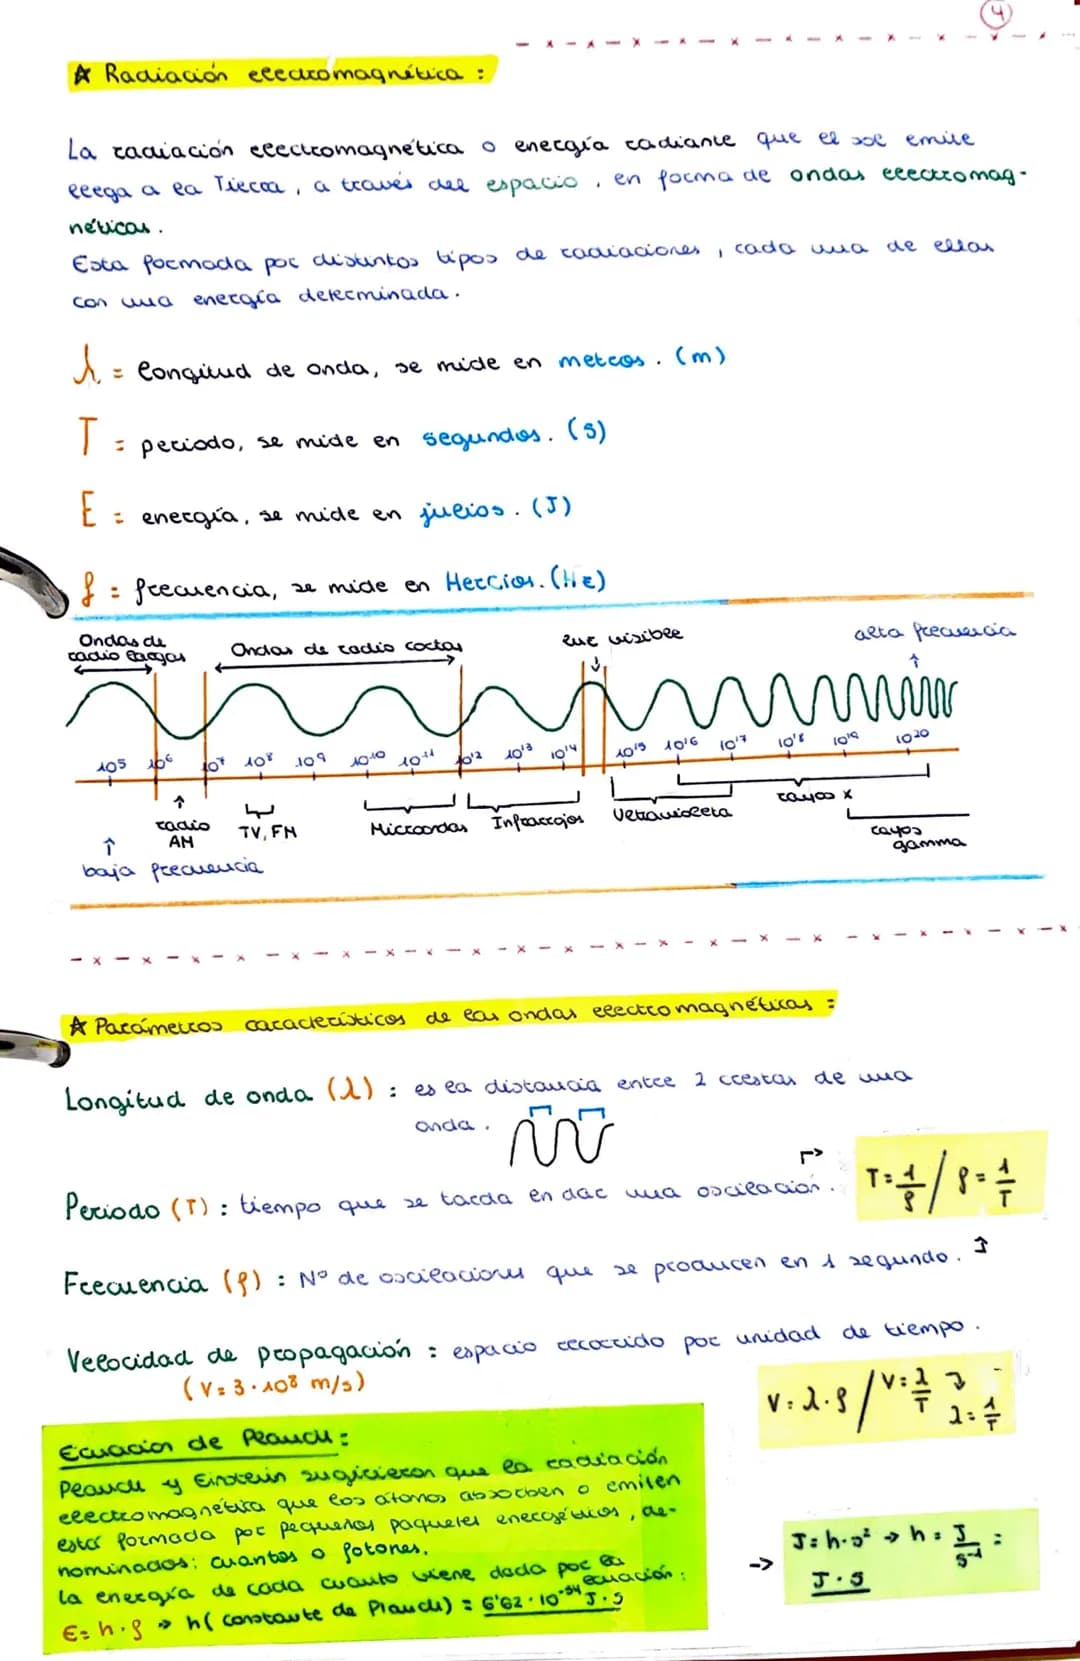 4
☆ Radiación electromagnética :
La radiación electromagnética o energía radiante que el sol emite
llega a la Tierra, a través del espacio, en forma de ondas electromag-
néticas.
Esta formada por distintos tipos de radiaciones, cada una de ellas
con una energía determinada.
λ = longitud de onda, se mide en metros. (m)
T = periodo, se mide en segundos. (s)
E = energía, se mide en julios. (J)
f = frecuencia, se mide en Hercios. (Hz)
Ondas de radio largas
Ondas de radio cortas
luz visible
alta frecuencia
10⁵ 10⁶ 10⁷ 10⁸ 10⁹ 10¹⁰ 10¹¹ 10¹² 10¹³ 10¹⁴ 10¹⁵ 10¹⁶ 10¹⁷ 10¹⁸ 10¹⁹ 10²⁰
radio AM
TV, FM
Microondas
Infrarrojos
Ultravioleta
rayos x
rayos gamma
baja frecuencia
☆ Parámetros característicos de las ondas electromagnéticas :
Longitud de onda (λ) : es la distancia entre 2 crestas de una
onda.
Periodo (T) : tiempo que se tarda en dar una oscilación.
T = 1/f / f = 1/T
Frecuencia (f) : Nº de oscilaciones que se producen en 1 segundo.
Velocidad de propagación : espacio recorrido por unidad de tiempo.
(V = 3 · 10⁸ m/s)
V = λ · f / V = λ/T
λ = 1/T
Ecuación de Planck :
Planck y Einstein sugirieron que la radiación
electromagnética que los átomos absorben o emiten
está formada por pequeños paquetes energéticos, de-
nominados: cuantos o fotones.
la energía de cada cuanto viene dada por la
ecuación :
E = h · f → h (constante de Planck) = 6'62 · 10⁻³⁴ J · s
→ J = h · s² → h = J/s⁻¹ =
J · s